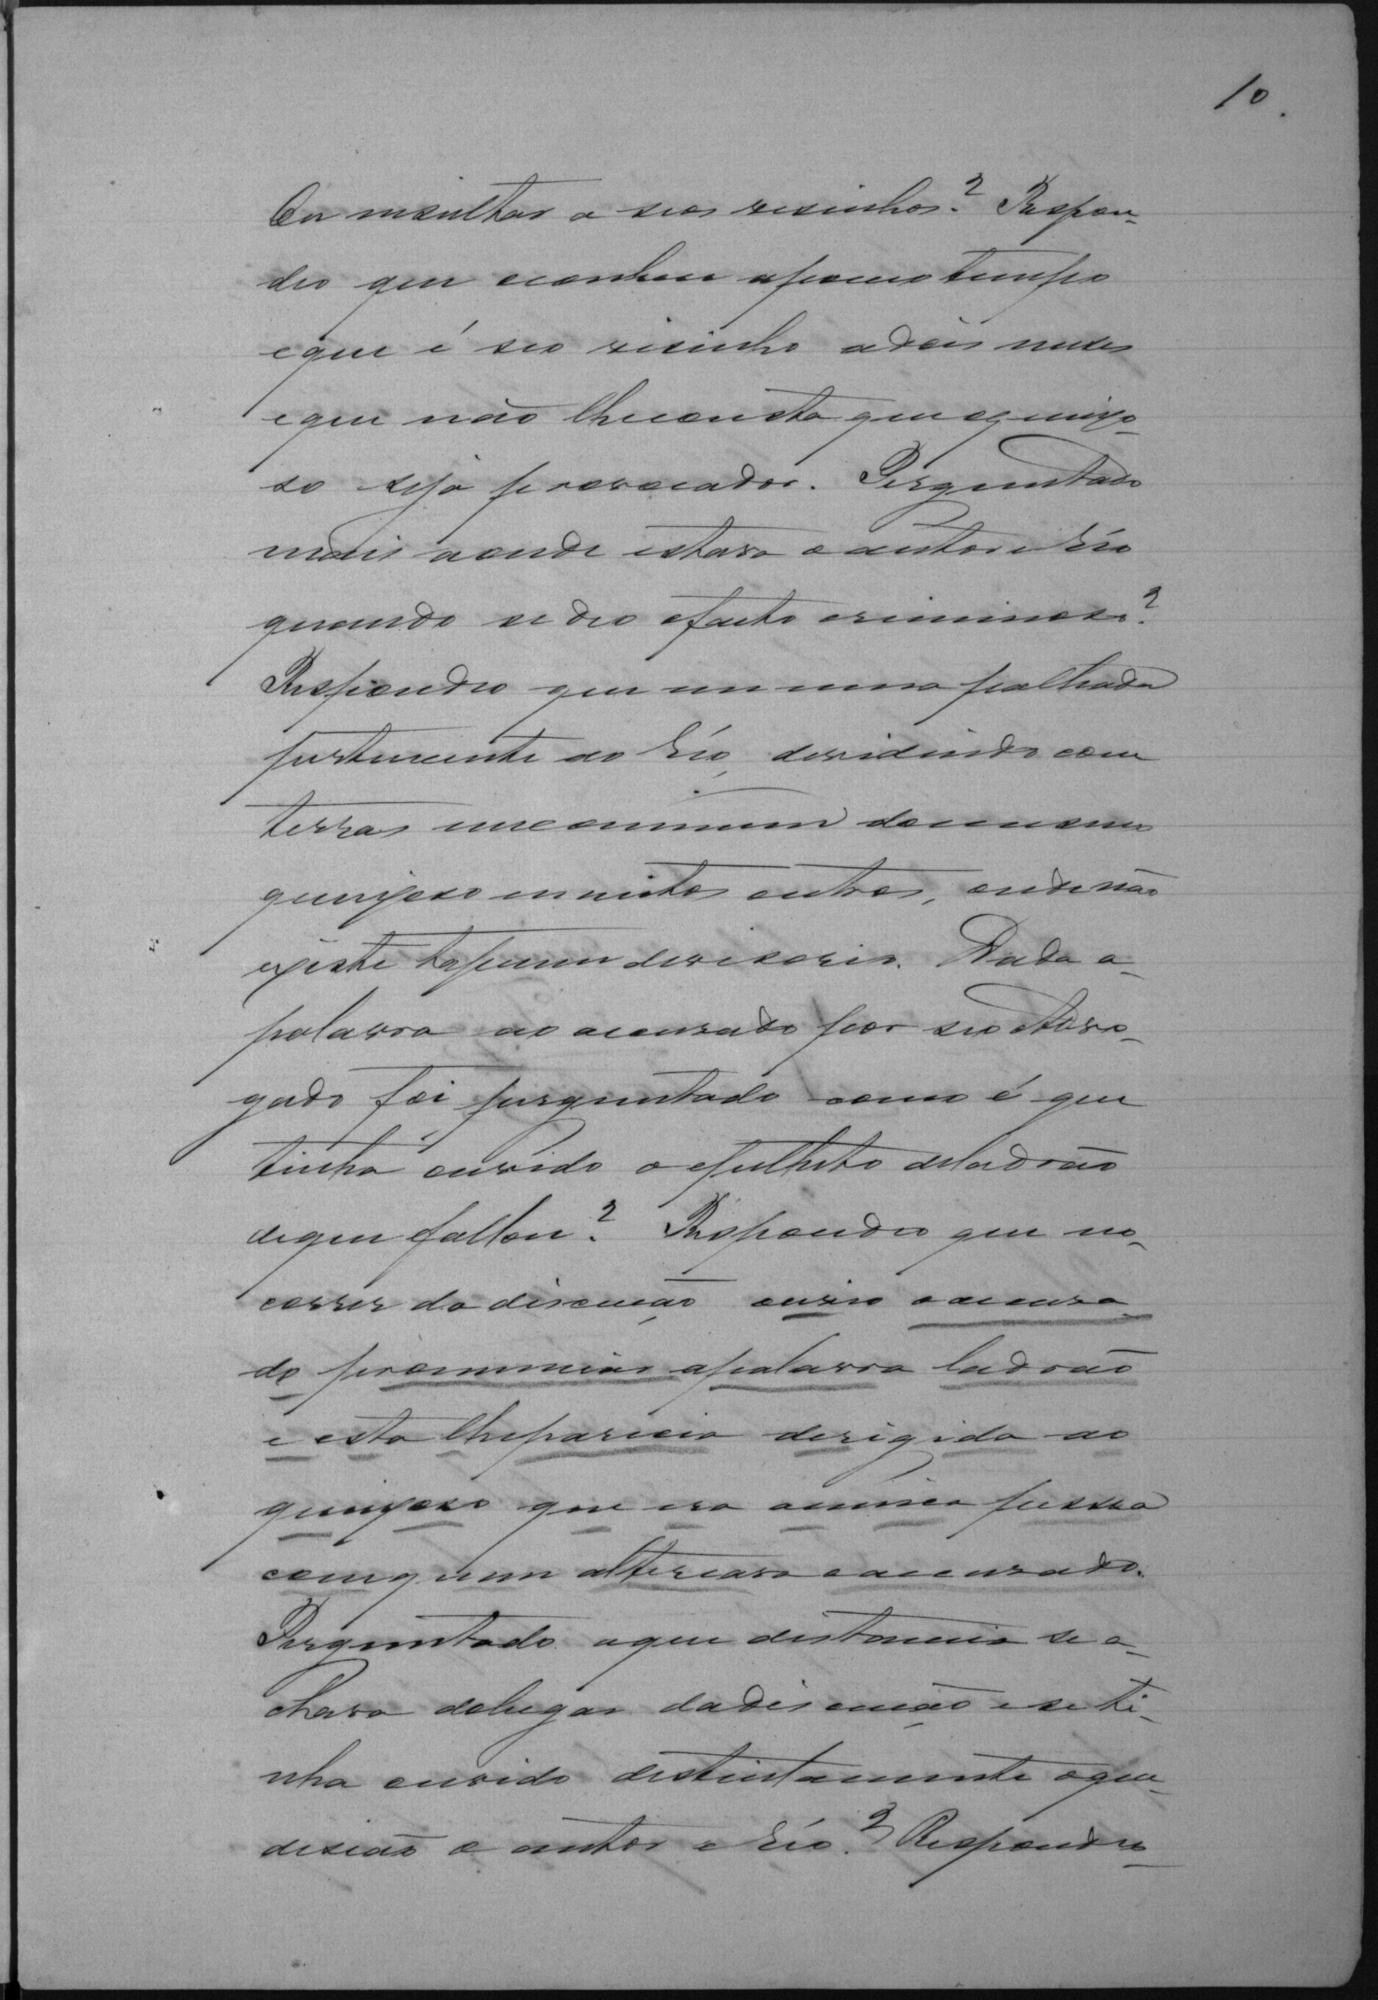 10.
Ou insultar a seos visinhos? Respon-
deo que conhece a pouco tempo
e que é seo visinho a dois meses
e que não lhe consta que o queixo-
so seja provocador. Perguntado
mais aonde estava o autor e réo
quando se deo o facto criminoso?
Respondeo que em uma palhada
pertencente ao réo, devidindo com
terras em commum do mesmo
queixoso e muitos outros, onde não
existe tapume devisorio. Dada a-
palavra ao accusado por seo Advo-
gado foi perguntado como é que
tinha ouvido o epitheto de ladrão
de que fallou? Respondeo que no-
correr da discução ouvio o accusa-
do pronunciar a palavra ladrão
e esta lhe parecia derigida ao
queixoso que era a unica pessoa
com quem altercava o accusado.
Perguntado a que distancia se a-
chava do lugar da discução e se ti-
nha ouvido destintamente o que
disião o autor e réo? Respondeo